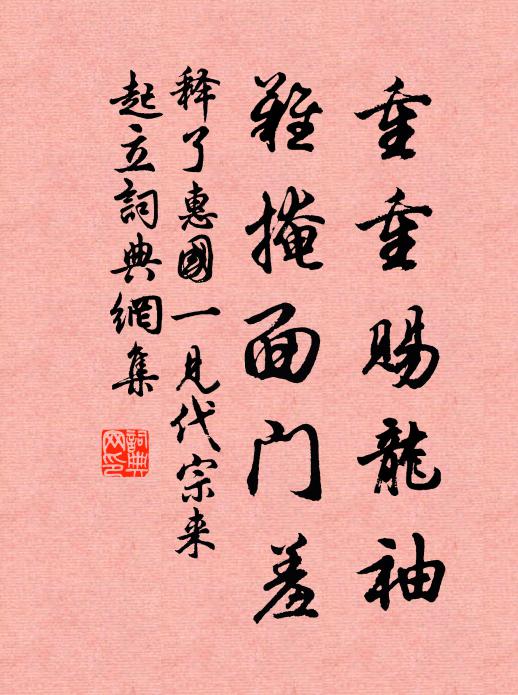 重重賜龍袖
難掩面门羞
释了惠國一見代宗来
起立詞典網集
詞典网印